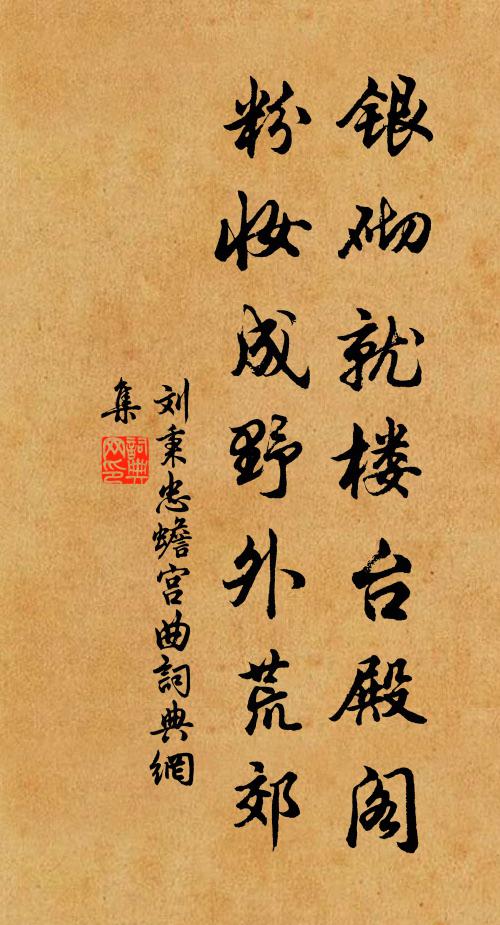 银砌就楼台殿阁
粉妆成野外荒郊
刘秉忠蟾宫曲詞典網
集
詞典网印